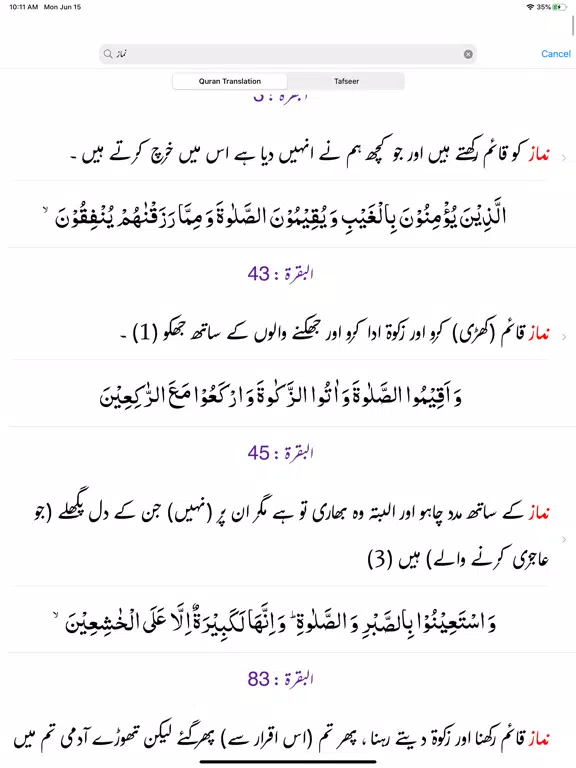 10:11 AM Mon Jun 15 35%
نماز
Cancel
Quran Translation Tafseer
البقرۃ : 3
نماز کو قائم رکھتے ہیں اور جو کچھ ہم نے انہیں دیا ہے اس میں خرچ کرتے ہیں ۔
الَّذِیْنَ یُؤْمِنُوْنَ بِالْغَیْبِ وَیُقِیْمُوْنَ الصَّلٰوۃَ وَمِمَّا رَزَقْنٰهُمْ یُنْفِقُوْنَ ۙ
البقرۃ : 43
نماز قائم (کھڑی) کرو اور زکوۃ ادا کرو اور جھکنے والوں کے ساتھ جھکو (1) ۔
وَاَقِیْمُوا الصَّلٰوۃَ وَاٰتُوا الزَّکٰوۃَ وَارْکَعُوْا مَعَ الرّٰکِعِیْنَ
البقرۃ : 45
نماز کے ساتھ مدد چاہو اور البتہ وہ بھاری تو ہے مگر ان پر (نہیں) جن کے دل پگھلے (جو
عاجزی کرنے والے) ہیں (3)
وَاسْتَعِیْنُوْا بِالصَّبْرِ وَالصَّلٰوۃِ ؕ وَاِنَّهَا لَکَبِیْرَۃٌ اِلَّا عَلَی الْخٰشِعِیْنَ ۙ
البقرۃ : 83
نماز قائم رکھنا اور زکوۃ دیتے رہنا ، پھر تم (اس اقرار سے) پھرگئے لیکن تھوڑے آدمی تم میں